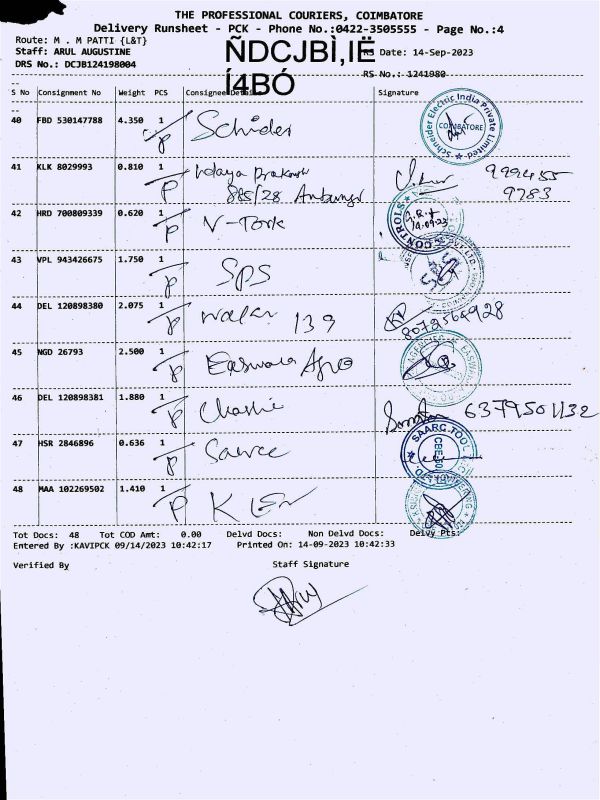 THE PROFESSIONAL COURIERS, COIMBATORE
Delivery Runsheet - PCK - Phone No.:0422-3505555 - Page No.:4
Route: M . M PATTI {L&T}
Staff: ARUL AUGUSTINE
ÑDCJBÌ,IË
RS Date: 14-Sep-2023
DRS No.: DCJB124198004
Í4BÓ
RS No.: 1241980
S No Consignment No Weight PCS Consignee Details Signature
40 FBD 530147788 4.350 1 P Schider
Schneider Electric India Private Limited
COIMBATORE
41 KLK 8029993 0.810 1 P Udaya Prakash
885/28
9994455
9783
42 HRD 700809339 0.620 1 P V-Tork
CONTROLS
14.09.23
43 VPL 943426675 1.750 1 P SPS
44 DEL 120898380 2.075 1 P 139
8072564928
45 NGD 26793 2.500 1 P Easwara Agro
46 DEL 120898381 1.880 1 P
6379501132
47 HSR 2846896 0.636 1 P
SAARC TOOL
48 MAA 102269502 1.410 1 P
Tot Docs: 48 Tot COD Amt: 0.00 Delvd Docs: Non Delvd Docs: Delvy Pts:
Entered By :KAVIPCK 09/14/2023 10:42:17 Printed On: 14-09-2023 10:42:33
Verified By Staff Signature